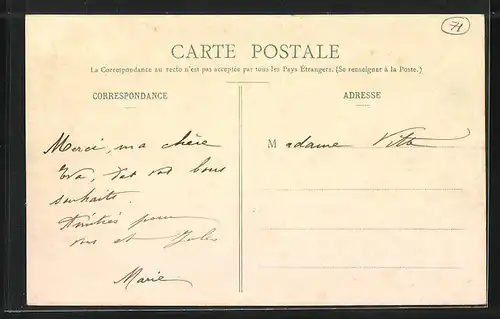 71
CARTE POSTALE
La Correspondance au recto n'est pas acceptée par tous les Pays Étrangers. (Se renseigner à la Poste.)
CORRESPONDANCE
ADRESSE
Merci, ma chère
Eva, de vos bons
souhaits.
Amitiés pour
vous et Jules
Marie
Madame Vitte